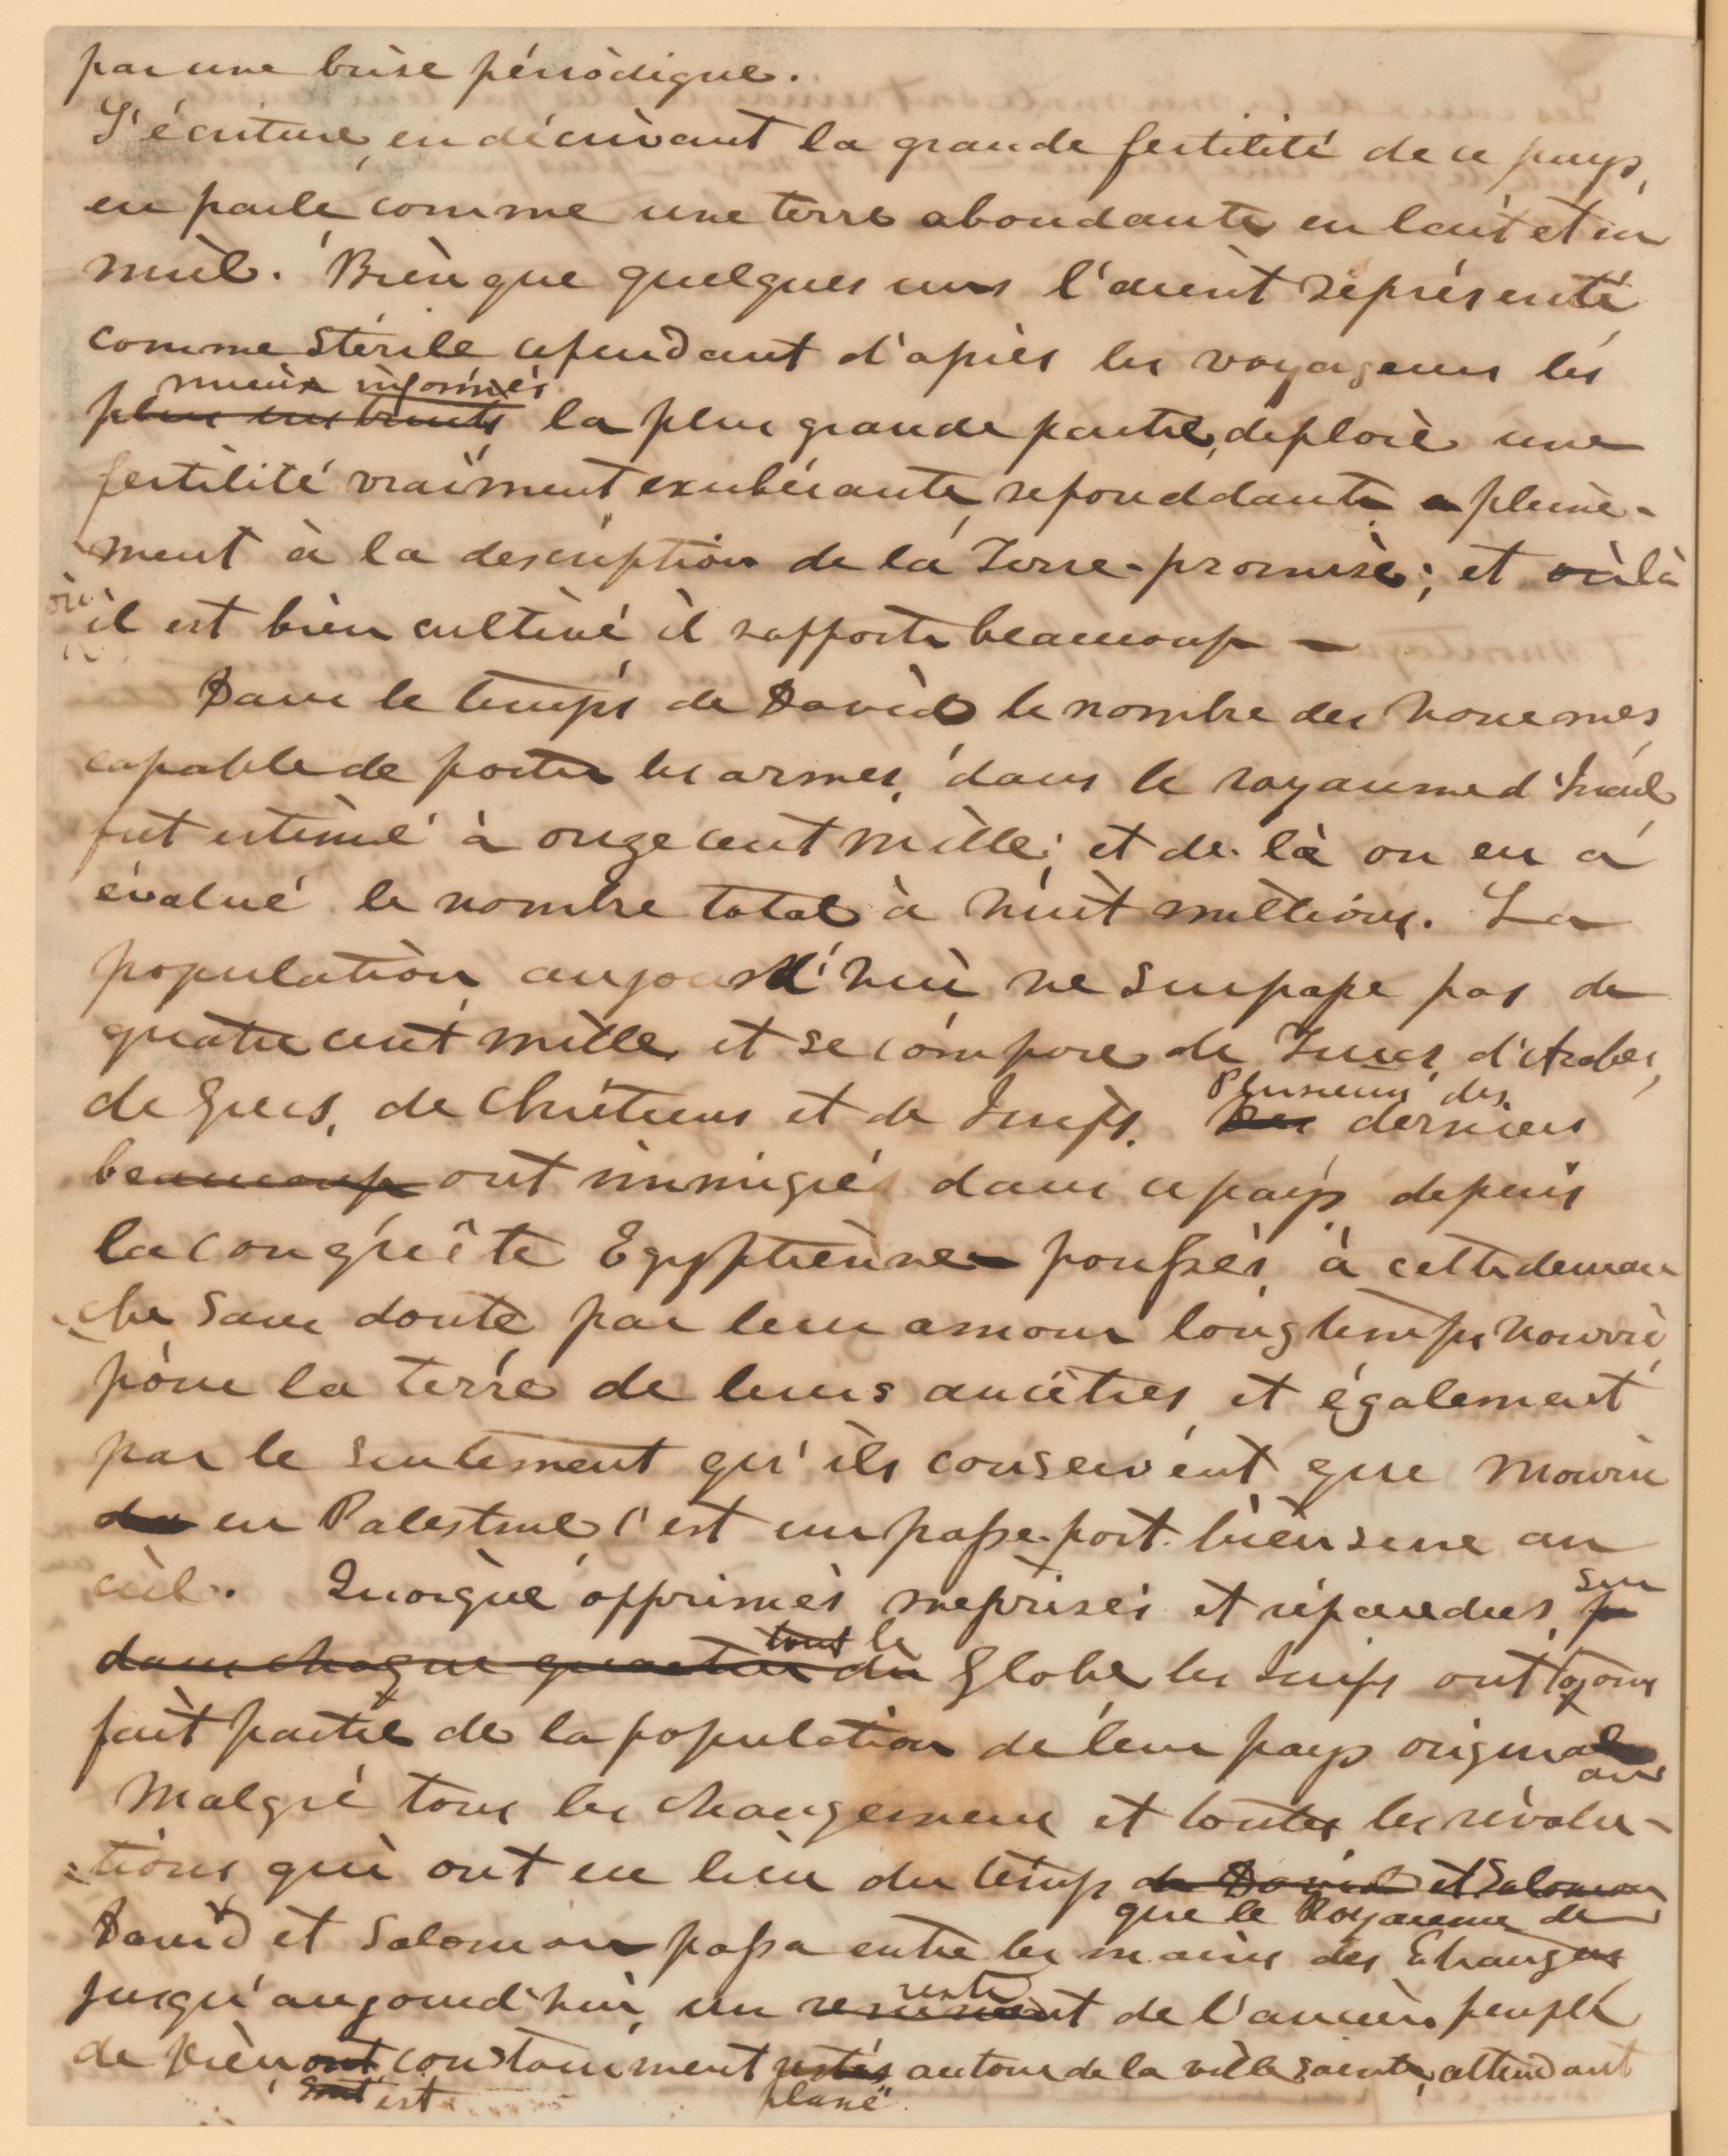 par une brise périodique.
L'écriture, en décrivant la grande fertilité de ce pays,
en parle comme une terre abondante en lait et en
miel. Bien que quelques uns l'aient représenté
comme stérile cependant d'après les voyageurs les
mieux informés
plus instruits la plus grande partie, deploie une
fertilité vraiment exubérante, reponddante a pleine-
ment à la description de la Terre-promise; et où là
où
il est bien cultivé il rapporte beaucoup —
Dans le temps de David le nombre des hommes
capable de porter les armes, dans le royaume d'Israel
fut estimé à onze cent mille; et de là on en a
évalué le nombre total à huit millions. La
population aujourd'hui ne surpasse pas de
quatre cent mille et se compose de Turcs, d'Arabes,
de Grecs, de Chrétiens et de Juifs.
Plusieurs des
Des derniers
beaucoup ont immigré dans ce pays depuis
la conquête Egyptienne poussés, à cette demar
che sans doute par leur amour longtemps nourri
pour la terre de leurs ancêtres et également
par le sentement qu'ils conservent que mourir
en Palestine c'est un passe-port bien sure au
ciel. Quoique opprimés méprisés et répandues,
sur
tout le
dans chaque quartier du Globe les Juifs ont tojours
fait partie de la population de leur pays original
Malgré tous les changemens et toutes les révolu-
tions qui ont eu lieu du temps de David et Salomon
que le Royaume de
David et Salomon passa entre les mains des Etrangers
jusqu'aujourd'hui, un
reste
de l'ancien peuple
de Dieu ont constamment restés autour de la ville sainte, attendant
sont est
plané